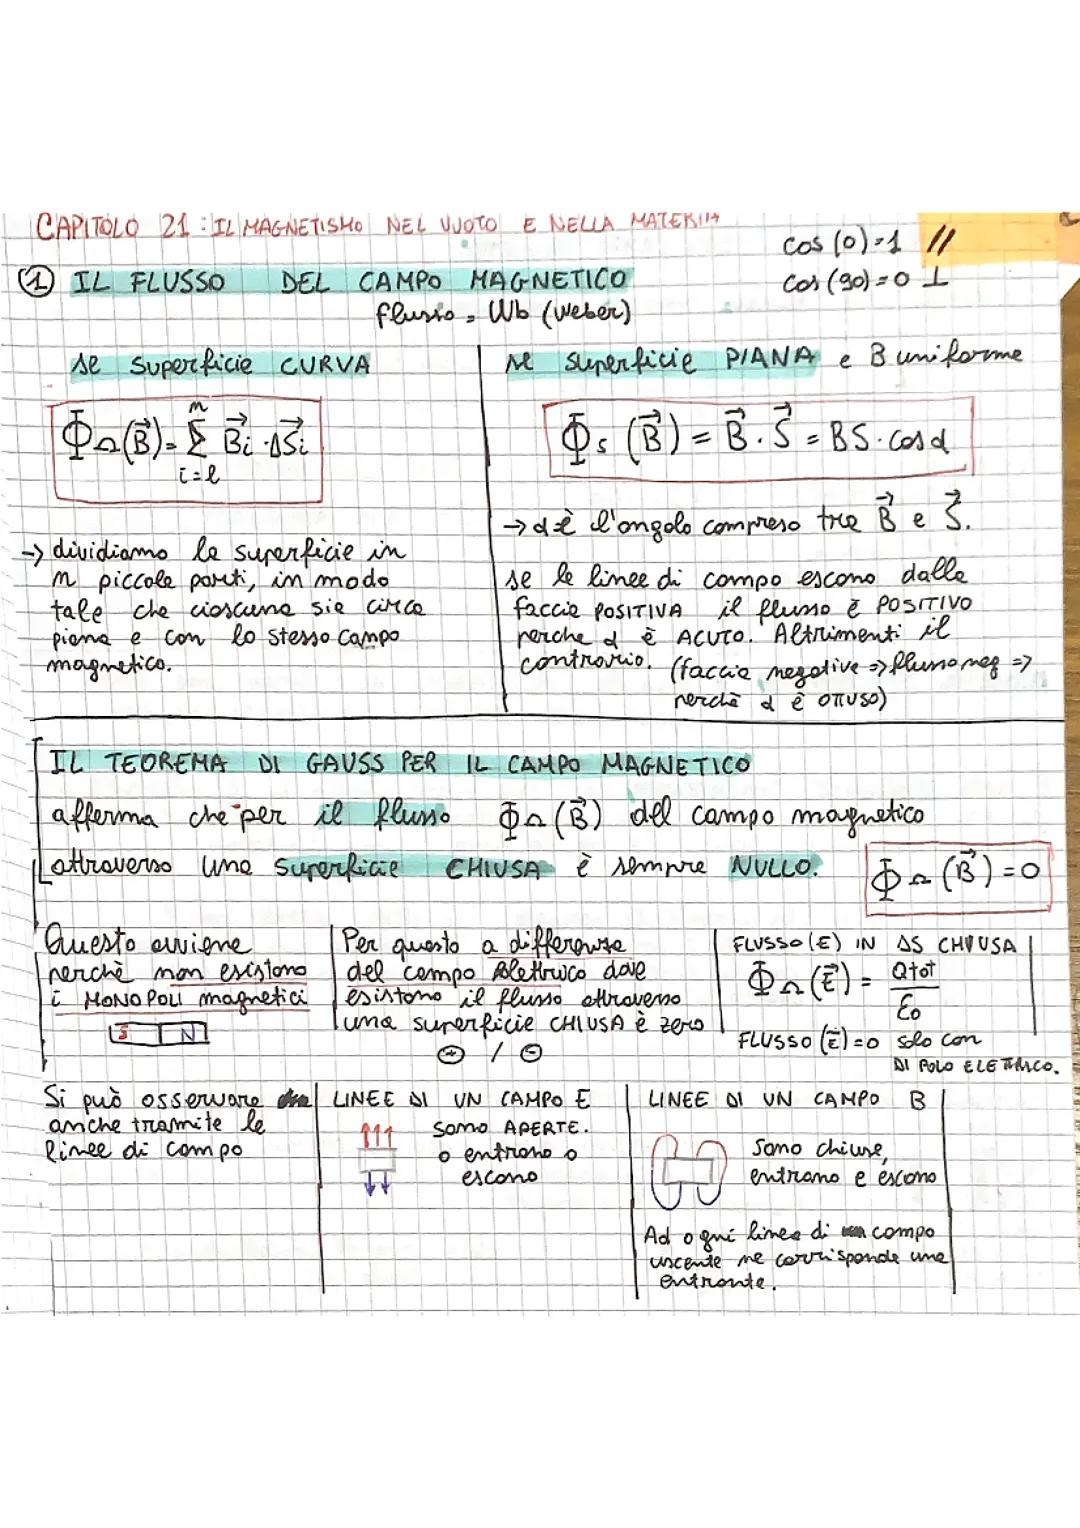 CAPITOLO 21 : IL MAGNETISMO NEL VUOTO E NELLA MATERIA
cos (0) = 1 //
cos (90) = 0 ⊥
① IL FLUSSO DEL CAMPO MAGNETICO
flusso = Wb (weber)
se superficie CURVA
Φ_Ω(B⃗) = Σ B⃗i · ΔS⃗i
n
i=1
→ dividiamo la superficie in
n piccole parti, in modo
tale che ciascuna sia circa
piana e con lo stesso campo
magnetico.
se superficie PIANA e B uniforme
Φs (B⃗) = B⃗ · S⃗ = BS · cos α
→ α è l'angolo compreso tra B⃗ e S⃗.
se le linee di campo escono dalla
faccia POSITIVA il flusso è POSITIVO
perche α è ACUTO. Altrimenti il
contrario. (faccia negativa => flusso neg =>
perchè α è OTTUSO)
IL TEOREMA DI GAUSS PER IL CAMPO MAGNETICO
afferma che per il flusso Φ_Ω (B⃗) del campo magnetico
attraverso una superficie CHIUSA è sempre NULLO.
Φ_Ω (B⃗) = 0
Questo avviene
perchè non esistono
i MONOPOLI magnetici
S N
Per questo a differenza
del campo elettrico dove
esistono il flusso attraverso
una superficie CHIUSA è zero
⊕ / ⊖
FLUSSO (E) IN ΔS CHIUSA
Φ_Ω (E⃗) = Qtot
ε₀
FLUSSO (E⃗) = 0 solo con
DI POLO ELETTRICO.
Si può osservare
anche tramite le
linee di campo
LINEE DI UN CAMPO E
sono APERTE.
o entrano o
escono
LINEE DI UN CAMPO B
Sono chiuse,
entrano e escono
Ad ogni linea di campo
uscente ne corrisponde una
entrante.